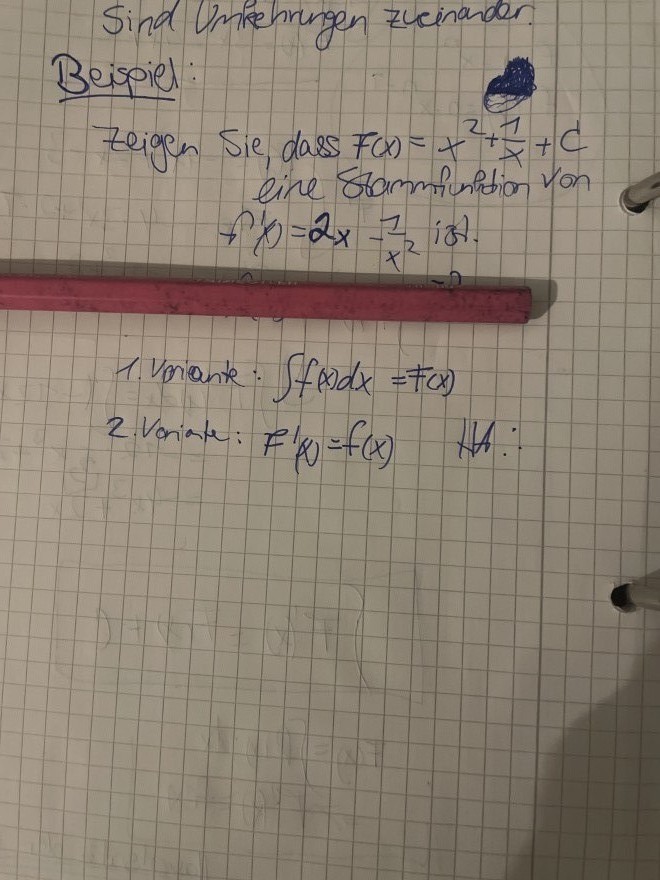 Sind Umkehrungen zueinander.
Beispiel:
Zeigen Sie, dass F(x) = x² + 1/x + C
eine Stammfunktion von
f'(x) = 2x - 1/x² ist.
1. Variante: ∫f(x)dx = F(x)
2. Variante: F'(x) = f(x) HA: